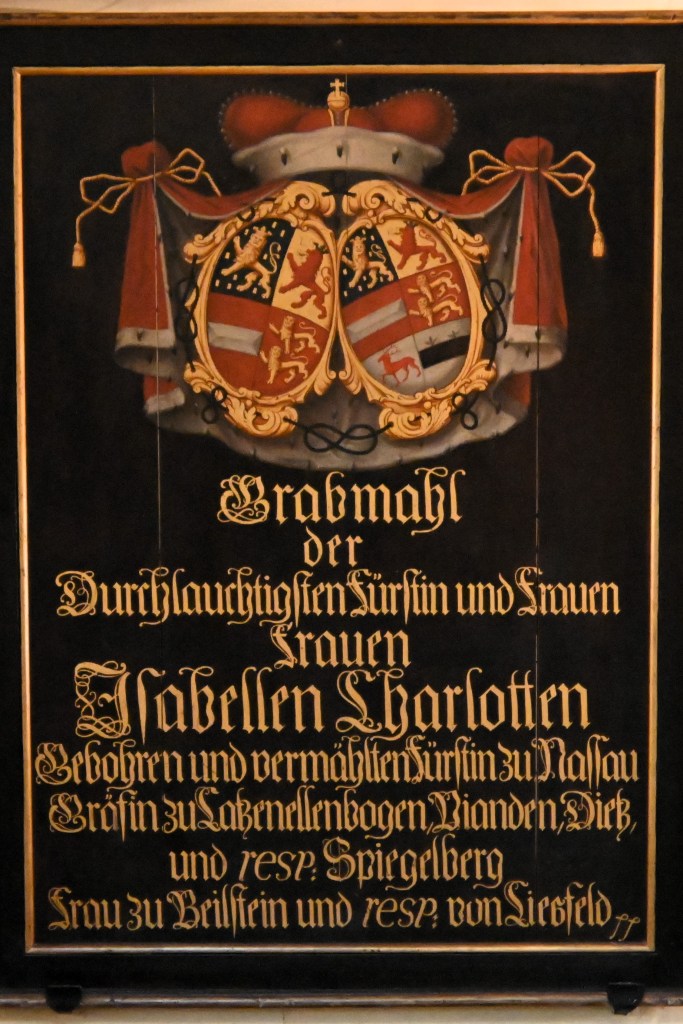 Grabmahl
der
Durchlauchtigsten Fürstin und Frauen
Frauen
Isabellen Charlotten
Gebohren und vermählten Fürstin zu Nassau
Gräfin zu Catzenellenbogen, Vianden, Dietz,
und resp: Spiegelberg
Frau zu Beilstein und resp: von Liesfeld